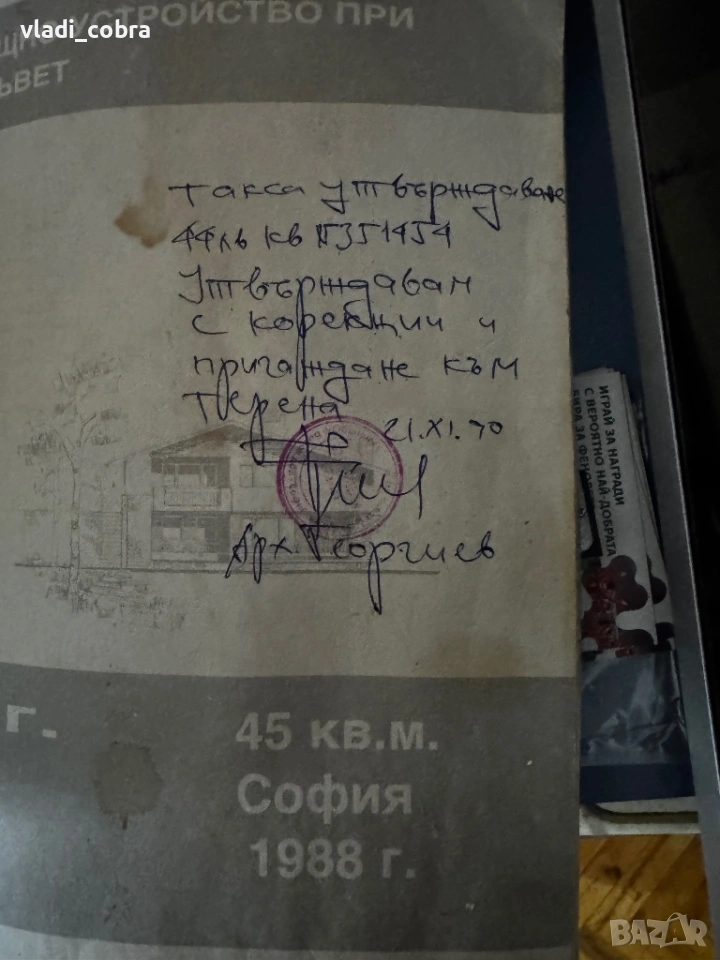 vladi_cobra
УСТРОЙСТВО ПРИ
ЪВЕТ
такса утвърждаване
44лв кв №351454
Утвърждавам
с корекции и
пригаждане към
терена
21.XI.90
Арх. Георгиев
г.
45 кв.м.
София
1988 г.
ИГРАЙ ЗА НАГРАДИ
С ВЕРОЯТНО НАЙ-ДОБРАТА
БИРА ЗА ФЕНОВЕ
BAZAR